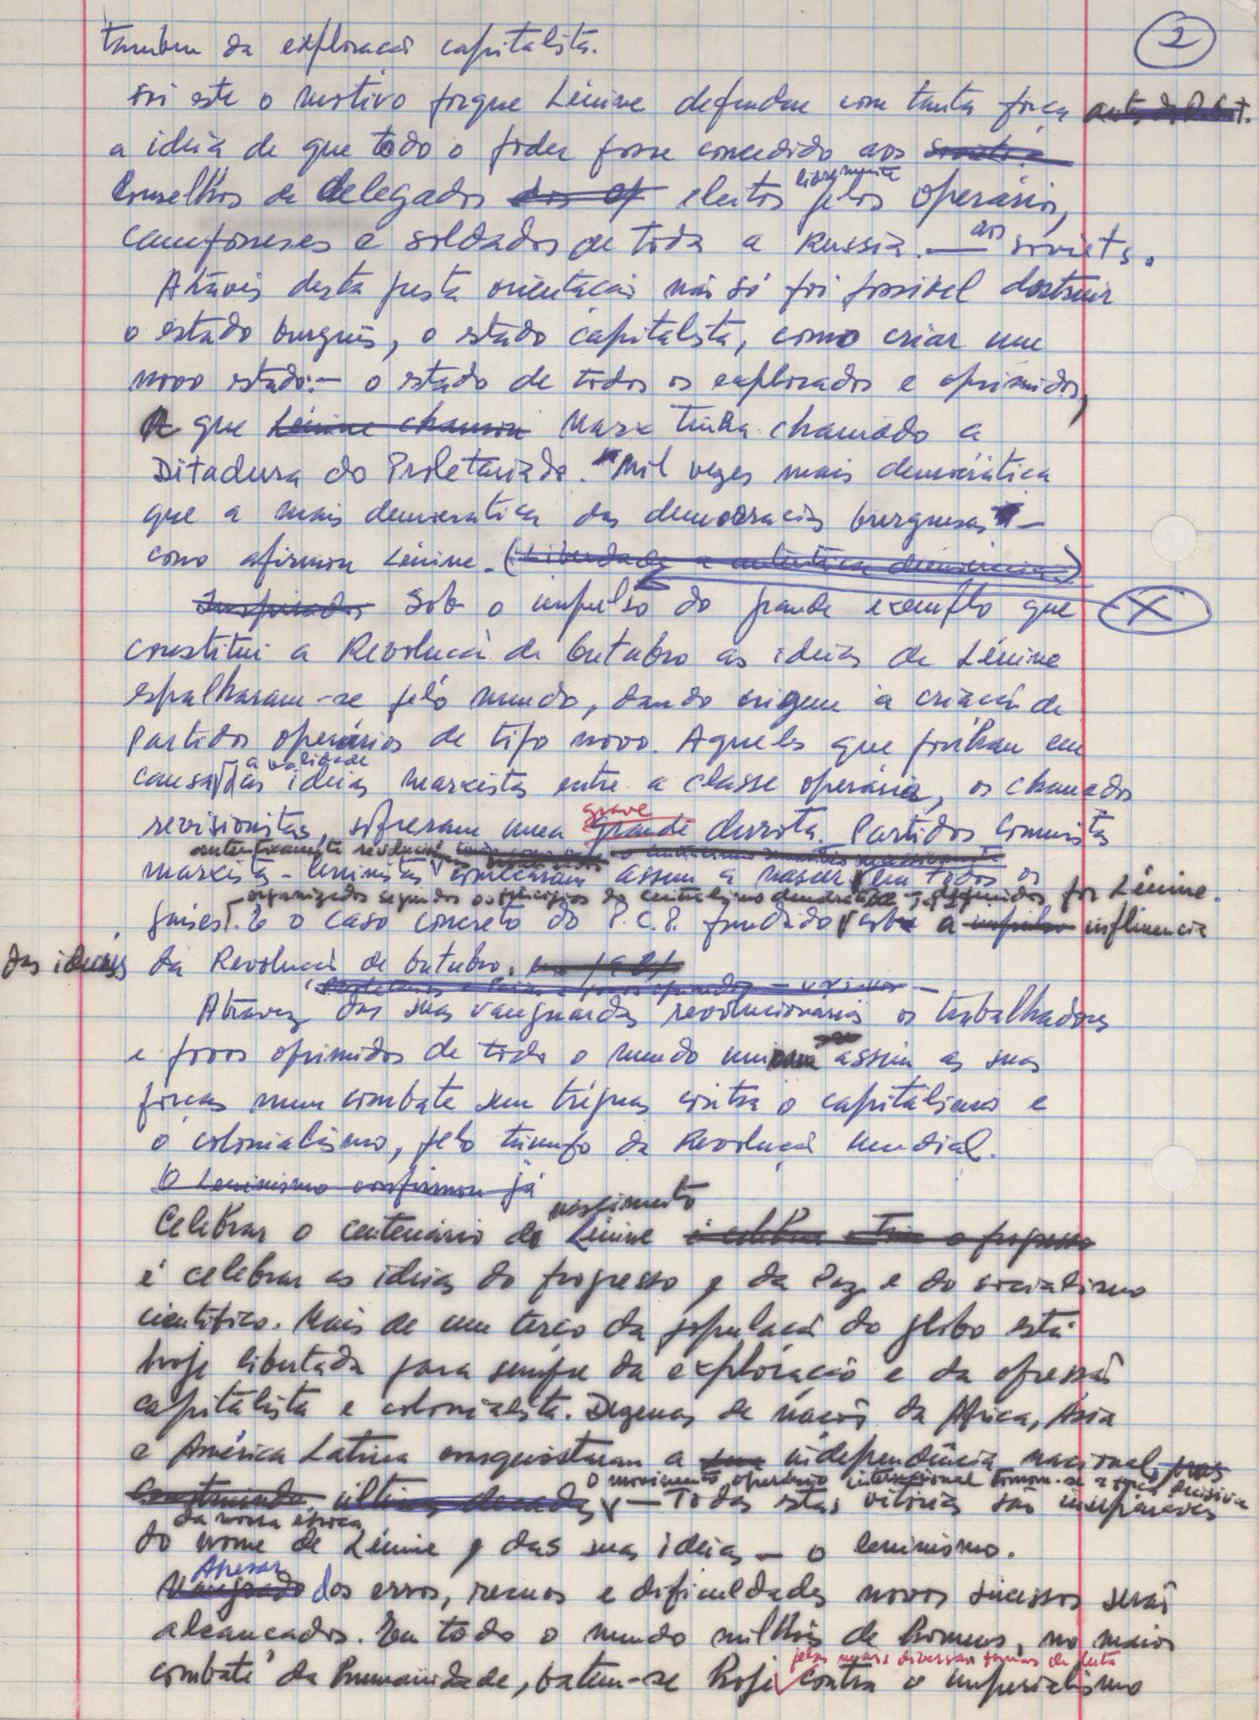 2
tambem da exploração capitalista.
Foi este o motivo porque Lénine defendeu com tanta força
a ideia de que todo o poder fosse concedido aos
Conselhos de delegados eleitos livremente pelos operários,
camponeses e soldados de toda a Russia. — aos soviets.
Através desta justa orientação não só foi possivel destruir
o estado burguês, o estado capitalista, como criar um
novo estado: — o estado de todos os explorados e oprimidos,
A que Lénine chamou Marx tinha chamado a
Ditadura do Proletariado. "Mil vezes mais democrática
que a mais democratica das democracias burguesas" —
como afirmou Lénine. (Liberdade e autêntica democracia)
Inspirados Sob o impulso do grande exemplo que X
constitui a Revolução de Outubro as ideias de Lénine
espalharam-se pelo mundo, dando origem à criação de
Partidos operários de tipo novo. Aqueles que punham em
a validade
causa das ideias marxistas entre a classe operária, os chamados
grave
revisionistas, sofreram uma grande derrota. Partidos Comunistas
autenticamente revolucionários
marxistas-leninistas começaram assim a nascer em todos os
organizados segundo os principios do centralismo democrático definidos por Lénine.
países. É o caso concreto do P.C.P. fundado sob a impulso influencia
das ideias da Revolução de Outubro. em 1921
Atravez das suas vanguardas revolucionarias os trabalhadores
e povos oprimidos de todo o mundo uniram assim as suas
forças num combate sem tréguas contra o capitalismo e
o colonialismo, pelo triunfo da Revolução mundial.
O Leninismo confirmou já
nascimento
Celebrar o centenário do Lénine é celebrar o progresso
é celebrar as ideias do progresso, da Paz e do socialismo
cientifico. Mais de um terço da população do globo está
hoje libertada para sempre da exploração e da opressão
capitalista e colonialista. Dezenas de nações da Africa, Asia
e América Latina conquistaram a sua independência nacional, nas
O movimento operário internacional tornou-se a força decisiva
ultimas decadas — Todas estas vitórias são inseparaveis
da nossa época
do nome de Lénine, das suas ideias — o leninismo.
Apesar
Malgrado dos erros, recuos e dificuldades novos sucessos serão
alcançados. Em todo o mundo milhões de homens, no maior
pelas mais diversas formas de luta
combate da humanidade, batem-se hoje contra o imperialismo